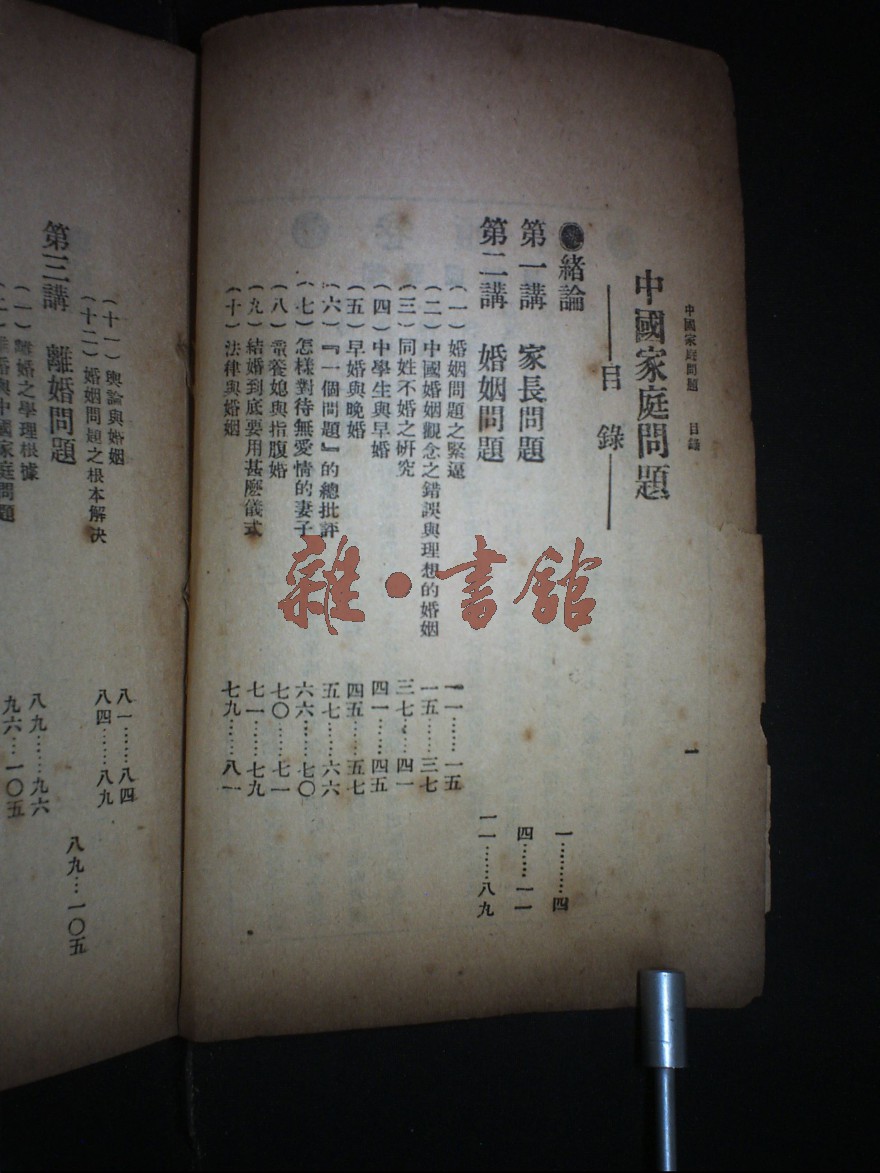 中國家庭問題　目錄
一
中國家庭問題
目錄
緒論　一………四
第一講　家長問題　四……一一
第二講　婚姻問題　一一……八九
(一)婚姻問題之緊逼　一一……一五
(二)中國婚姻觀念之錯誤與理想的婚姻　一五……三七
(三)同姓不婚之研究　三七……四一
(四)中學生與早婚　四一……四五
(五)早婚與晚婚　四五……五七
(六)『一個問題』的總批評　五七……六六
(七)怎樣對待無愛情的妻子　六六……七〇
(八)養媳與指腹婚　七〇……七一
(九)結婚到底要用甚麽儀式　七一……七九
(十)法律與婚姻　七九……八一
(十一)輿論與婚姻　八一……八四
(十二)婚姻問題之根本解決　八四……八九
第三講　離婚問題　八九…一〇五
(一)離婚之學理根據　八九……九六
婚與中國家庭問題　九六…一〇五
雜·書館